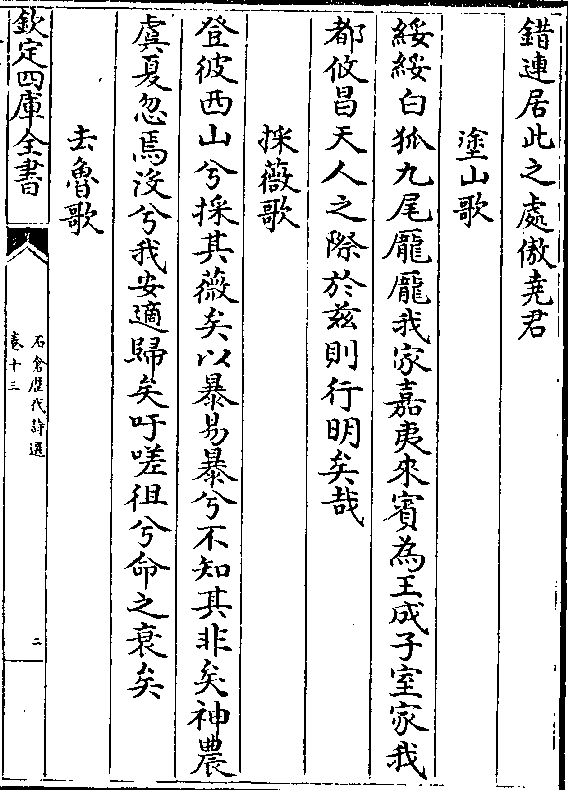 錯連居此之處傲堯君
塗山歌
綏綏白狐九尾龎龎我家嘉夷來賓為王成子室家我
都攸昌天人之際於兹則行明矣哉
採薇歌
登彼西山兮採其薇矣以暴易暴兮不知其非矣神農
虞夏忽焉沒兮我安適歸矣吁嗟徂兮命之衰矣
去魯歌
欽定四庫全書
石倉歷代詩選
卷十三
二